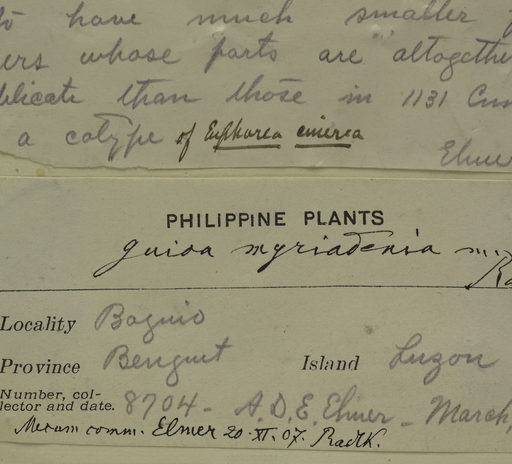 to have much smaller
whose parts are altogether
than those in 1131
a cotype of Euphorea cinerea
Elmer
PHILIPPINE PLANTS
guioa myriadenia
Locality Baguio
Province Benguet Island Luzon
Number, col-
lector and date. 8704 - A.D.E. Elmer - March,
Mecum comm. Elmer 20. XI. 07. Radlk.